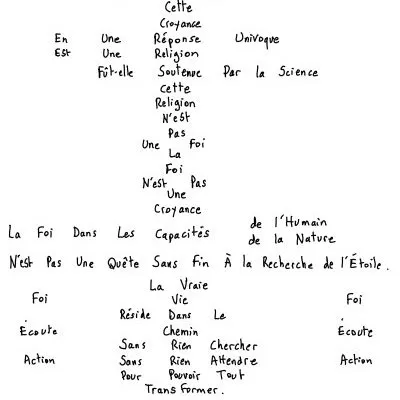 Cette
Croyance
En Une Réponse Univoque
Est Une Religion
Fût-elle Soutenue Par la Science
Cette
Religion
N'est
Pas
Une Foi
La
Foi
N'est Pas
Une
Croyance
La Foi Dans Les Capacités de l'Humain
de la Nature
N'est Pas Une Quête Sans Fin À la Recherche de l'Étoile.
La Vraie
Foi Vie Foi
Réside Dans Le
Écoute Chemin Écoute
Sans Rien Chercher
Action Sans Rien Attendre Action
Pour Pouvoir Tout
Transformer.